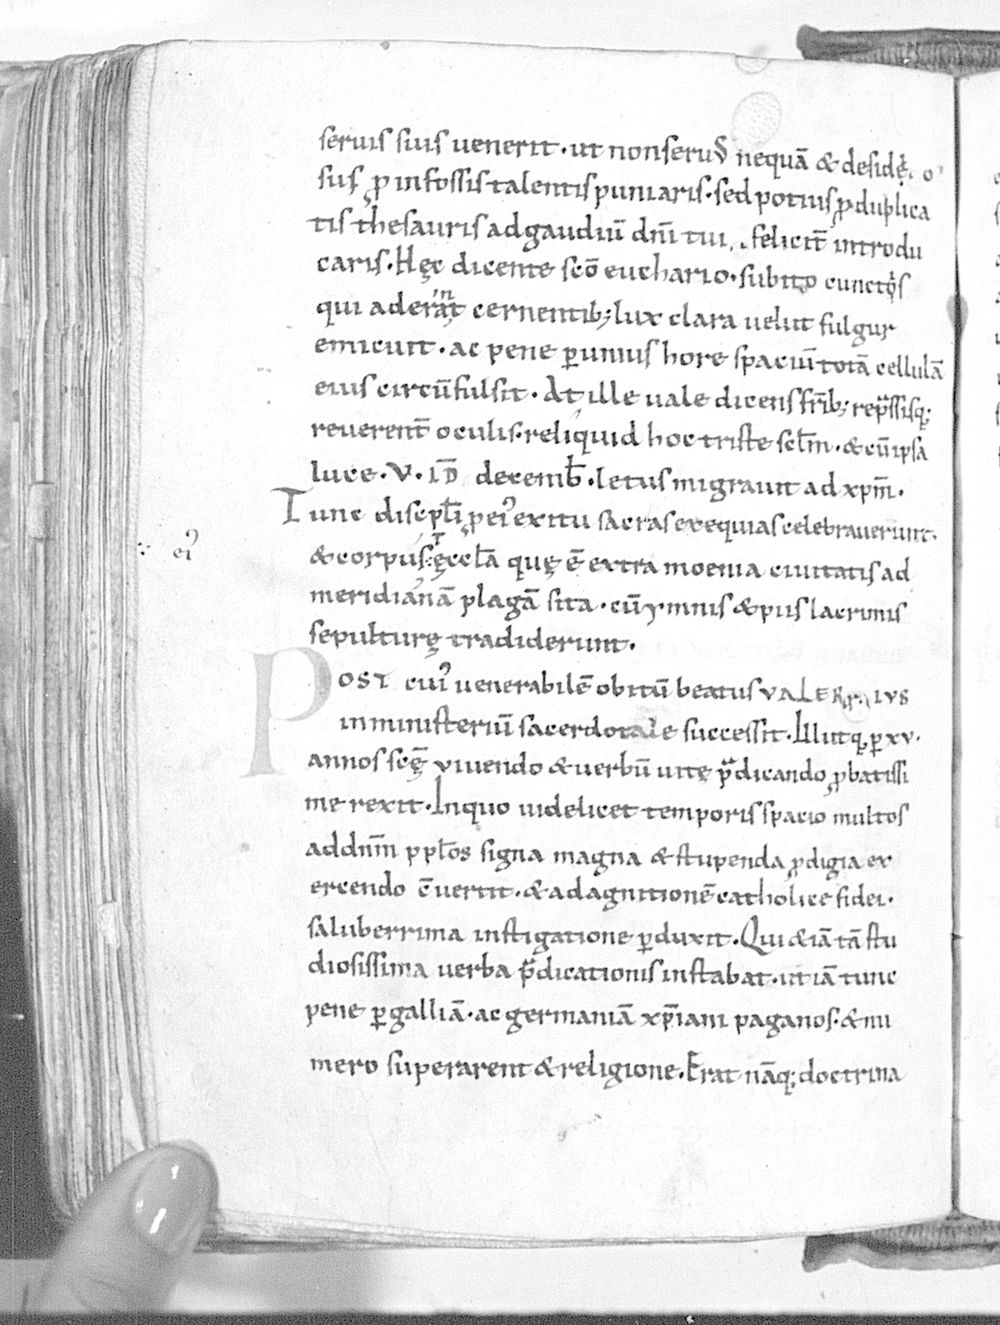 seruis suis uenerit · ut non seruꝰ nequā & desidẹ o
sus ꝓ infossis talentis puniaris · sed potius ꝓ duplica
tis thesauris ad gaudiū dn̄i tui, feliciť introdu
caris · Hęc dicente sc̄o euchario · subito cunctos
qui aderant cernentib; lux clara uelut fulgur
emicuit · ac pene ꝑ unius hore spaciū totā cellulā
eius circūfulsit · At ille uale dicens fr̄ib; rep̄ssisq;
reuerent̄ oculis · reliquid hoc triste sc̄lm · & cū ipsa
luce · V · ID̄ decemb̄ · letus migrauit ad xp̄m ·
Tunc discipl̄i ꝑ ei᾽ exitu sacras exequias celebrauerunt ·
ei᾽
& corpus ęccl̄a quę ē extra moenia ciuitatis ad
meridianā plagā sita · cū ymnis & piis lacrimis
sepulturę tradiderunt ·
POST cui᾽ uenerabilē obitū beatus VALERIVS
in ministeriū sacerdotale successit · Illūtq, ꝑ xv ·
annos sc̄ę viuendo & uerbū uitę p̄dicando ꝓbatissi
me rexit · In quo uidelicet temporis spacio multos
ad dn̄m p pl̄os signa magna & stupenda ꝓdigia ex
ercendo ƈuertit · & ad agnitionē catholice fidei ·
saluberrima instigatione ꝑduxit · Qui & iā tā stu
diosissima uerba p̄dicationis instabat · ut iā tunc
pene ꝑ galliā · ac germaniā xp̄iani paganos · & nu
mero superarent & religione · Erat nāq; doctrina